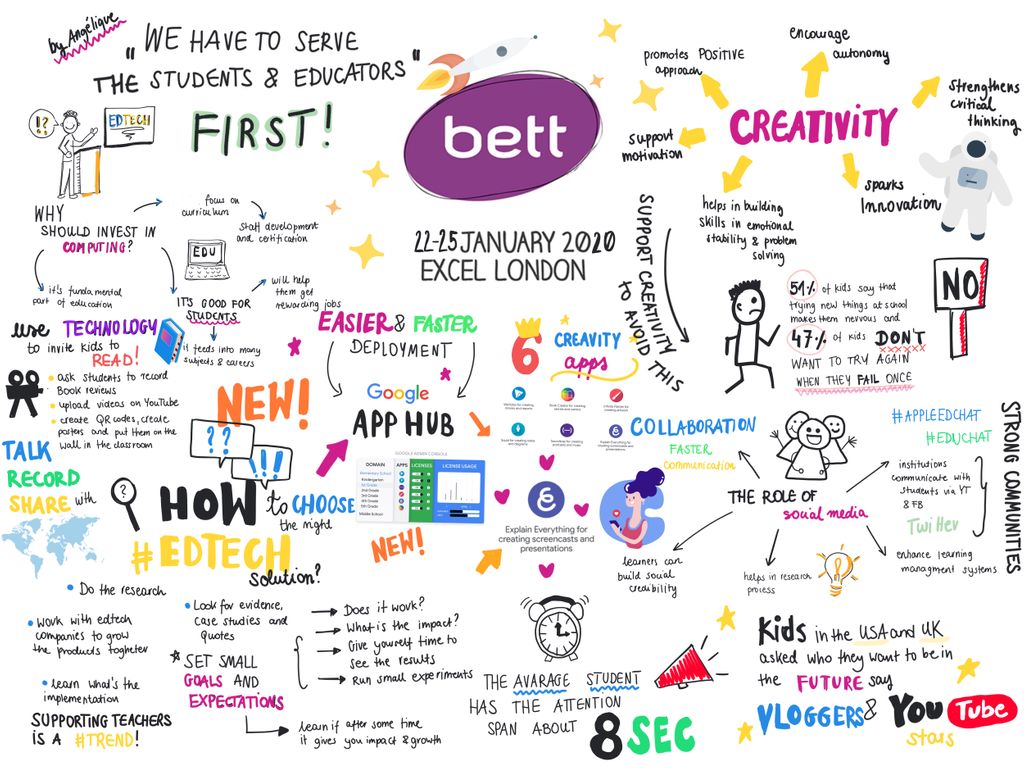 by Angélique
"WE HAVE TO SERVE
THE STUDENTS & EDUCATORS"
FIRST!
!?
EDTECH
bett
22-25 JANUARY 2020
EXCEL LONDON
CREATIVITY
promotes POSITIVE
approach
encourage
autonomy
strengthens
critical
thinking
support
motivation
helps in building
skills in emotional
stability & problem
solving
sparks
Innovation
WHY
SHOULD INVEST IN
COMPUTING?
focus on
curriculum
staff development
and certification
EDU
it's fundamental
part of education
IT'S GOOD FOR
STUDENTS
will help
them get
rewarding jobs
it feeds into many
subjects & careers
SUPPORT CREATIVITY
TO AVOID THIS
51% of kids say that
trying new things at school
makes them nervous and
47% of kids DON'T
WANT TO TRY AGAIN
WHEN THEY FAIL ONCE
NO
use TECHNOLOGY
to invite kids to
READ!
ask students to record
Book reviews
upload videos on YouTube
create QR codes, create
posters and put them on the
wall in the classroom
TALK
RECORD
SHARE with
EASIER & FASTER
DEPLOYMENT
Google
APP HUB
NEW!
GOOGLE ADMIN CONSOLE
DOMAIN
APPS
LICENSES
LICENSE USAGE
Elementary School
Kindergarten
1st Grade
2nd Grade
3rd Grade
4th Grade
5th Grade
Middle School
NEW!
6 CREAVITY
apps
Explain Everything for
creating screencasts and
presentations
COLLABORATION
FASTER
communication
THE ROLE OF
social media
#APPLEEDCHAT
#EDUCHAT
institutions
communicate with
students via YT
& FB
Twitter
enhance learning
managment systems
helps in research
process
learners can
build social
credibility
STRONG COMMUNITIES
??
!!!
?
HOW to CHOOSE
the right
#EDTECH
solution?
Do the research
Work with edtech
companies to grow
the products togheter
learn what's the
implementation
SUPPORTING TEACHERS
IS A #TREND!
Look for evidence,
case studies and
quotes
Does it work?
What is the impact?
Give yourself time to
see the results
Run small experiments
* SET SMALL
GOALS AND
EXPECTATIONS
learn if after some time
it gives you impact & growth
THE AVARAGE STUDENT
HAS THE ATTENTION
SPAN ABOUT
8 SEC
Kids in the USA and UK
asked who they want to be in
the FUTURE say
VLOGGERS & YouTube
stars